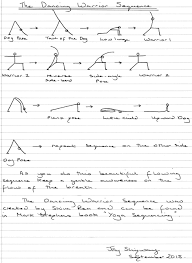 The Dancing Warrior Sequence
Dog Pose
Warrior 1
Warrior 2
Side-angle Pose
Warrior 2
Plank pose
Upward Dog
Dog Pose
repeat sequence on the other side
As you do this beautiful flowing
sequence keep a gentle awareness on the
flow of the breath.
The Dancing Warrior Sequence was
created by Shiva Rea and can be found
in Mark Stephens book "Yoga Sequencing"
September 2013